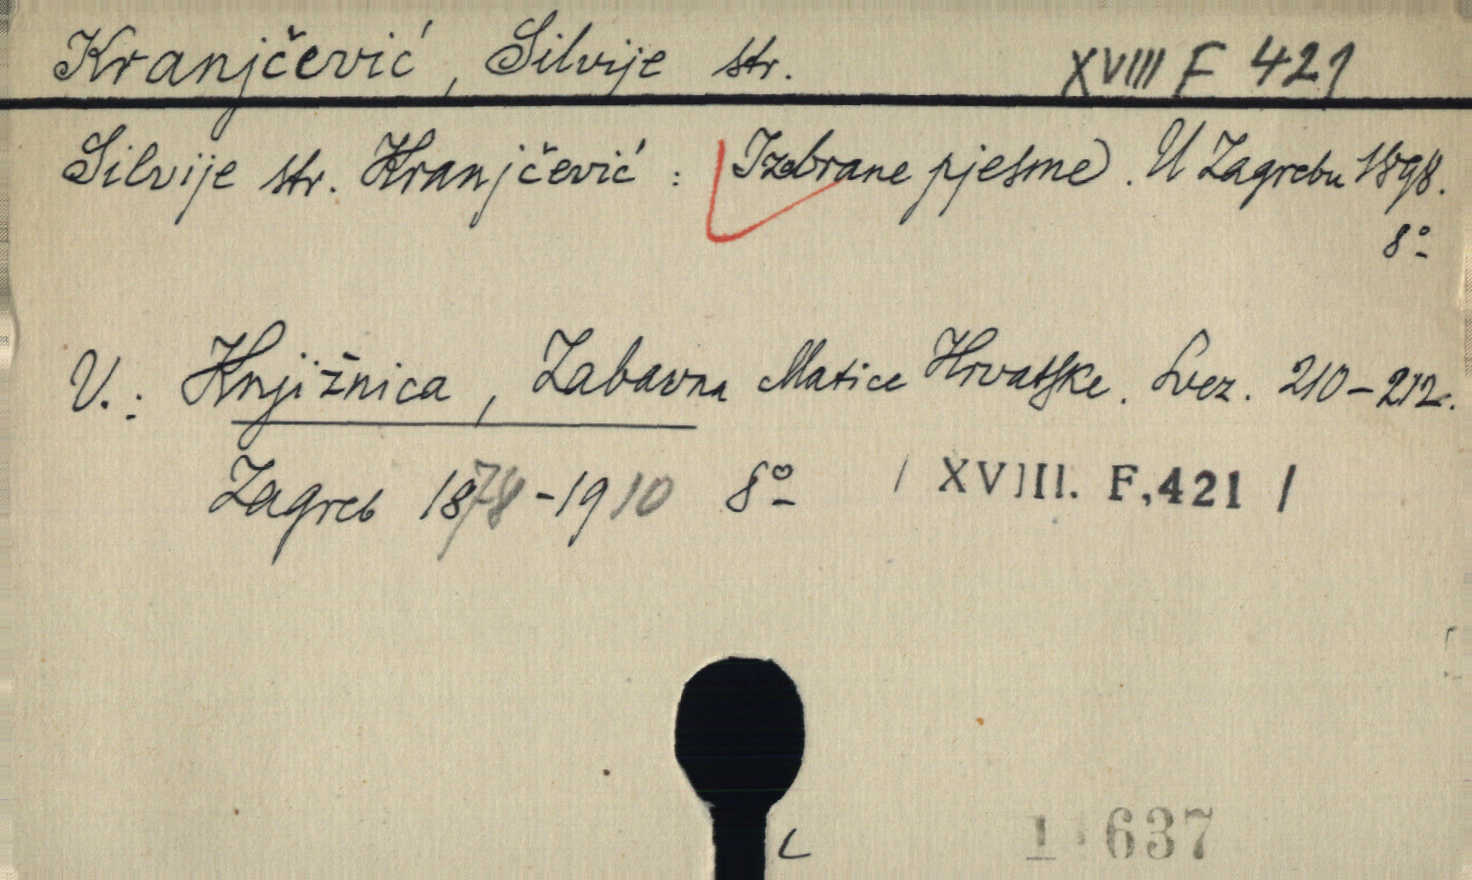 Kranjčević, Silvije str. XVIII F 421
Silvije str. Kranjčević: Izabrane pjesme. U Zagrebu 1898.
8º
V.: Knjižnica, Zabavna Matice Hrvatske. Svez. 210-212.
Zagreb 1878-1910 8º / XVIII. F,421 /
637